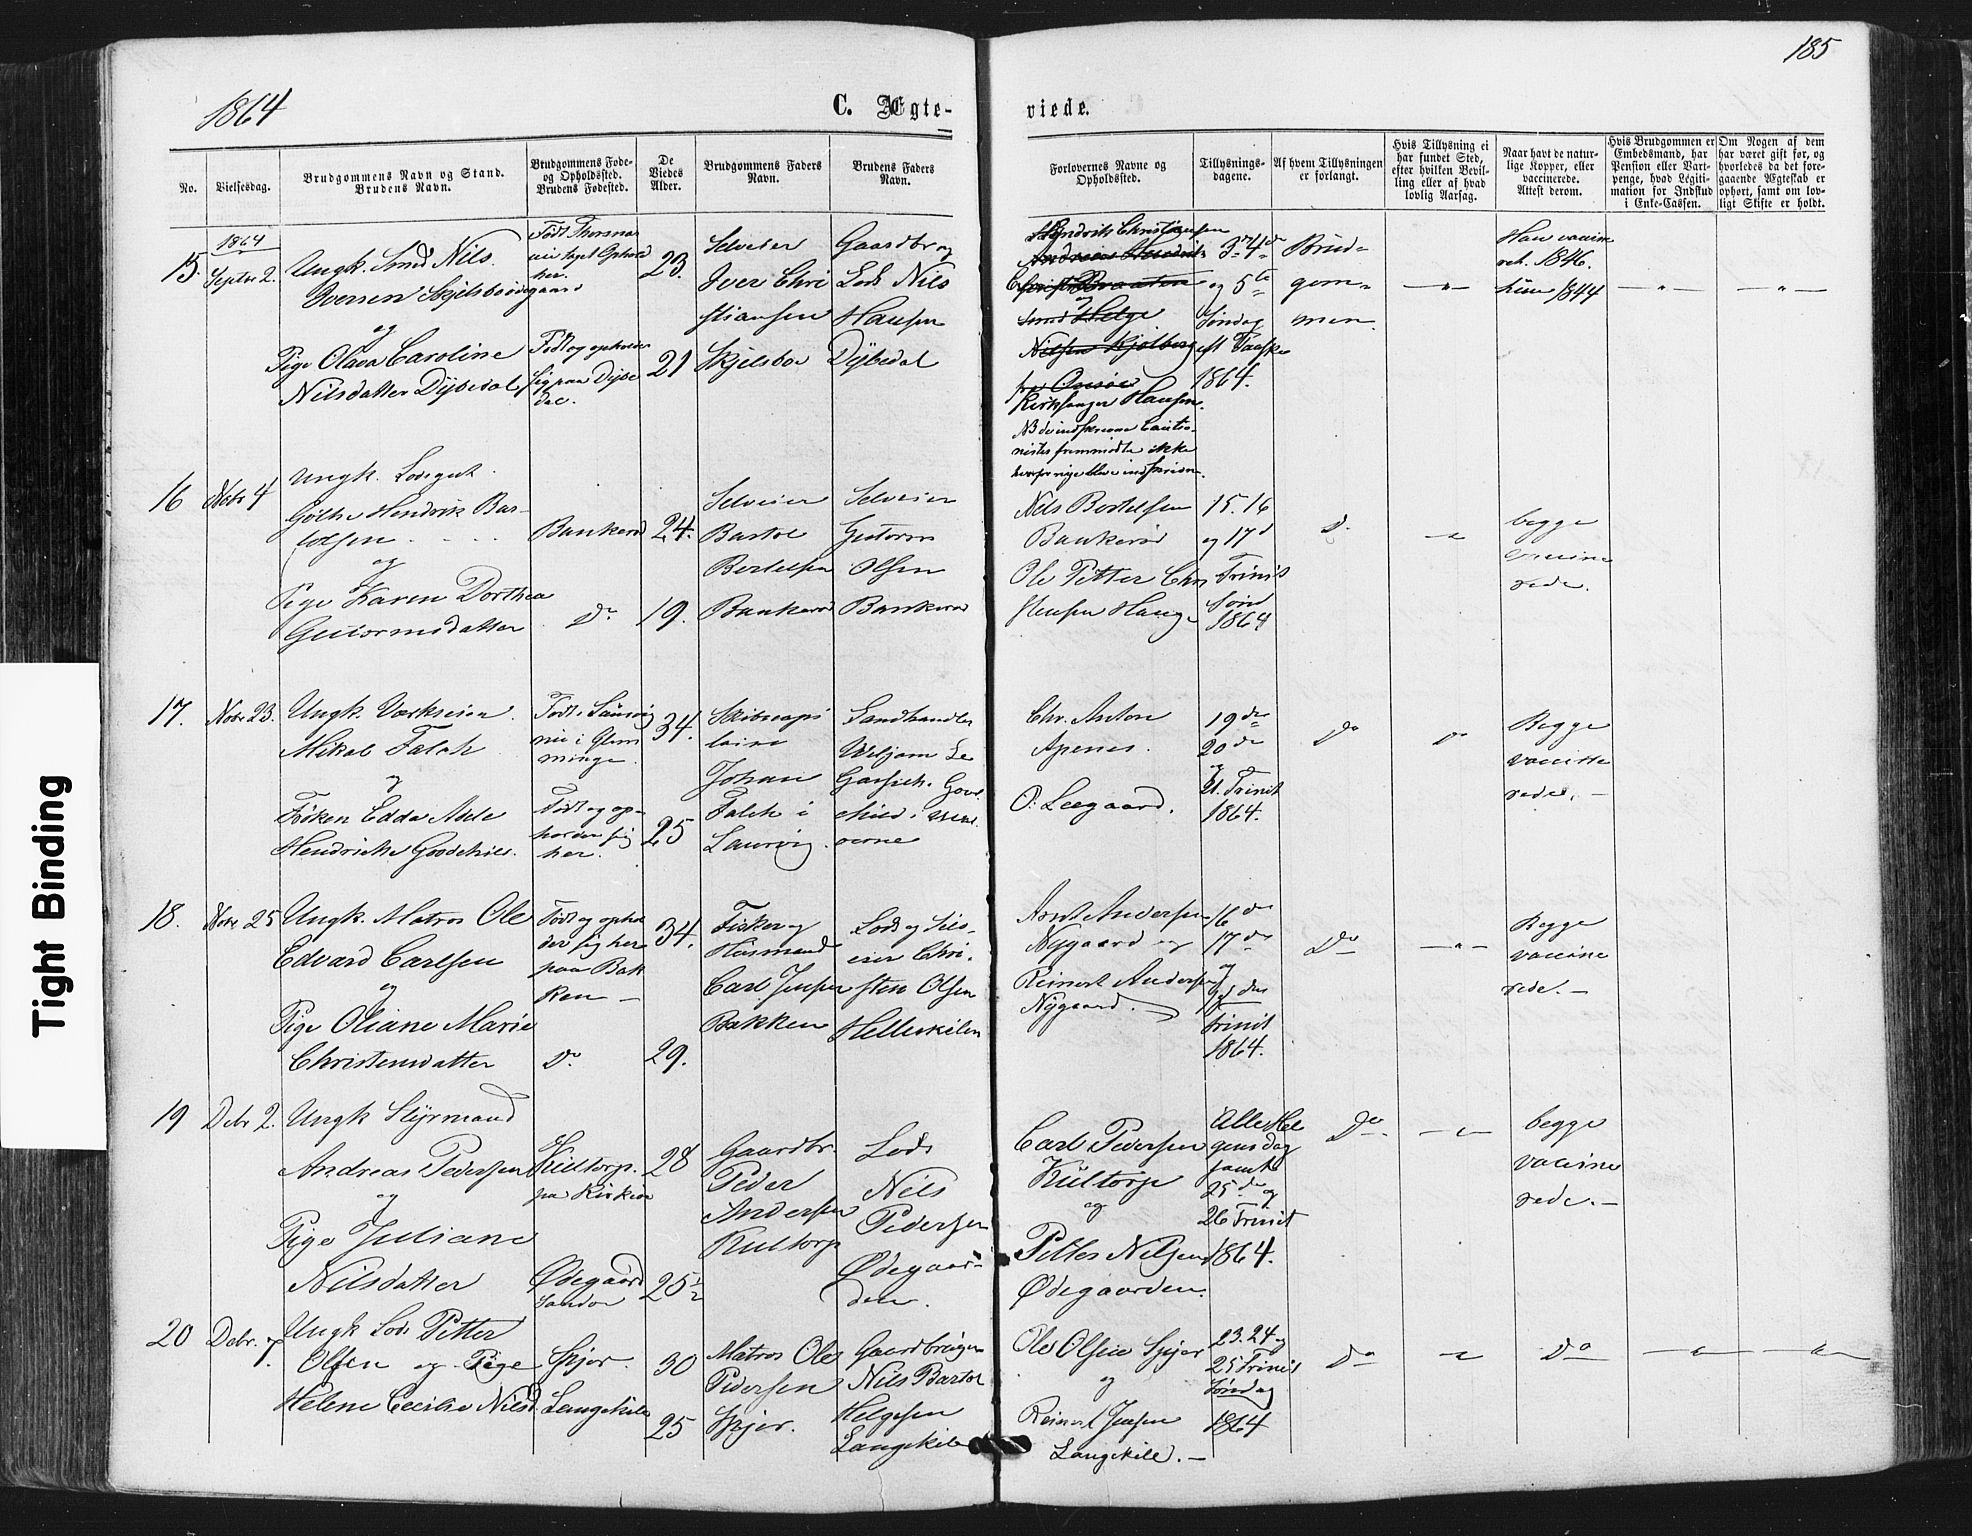 185
1864
C. Ægte-
viede.
No.
Vielsesdag.
Brudgommens Navn og Stand.
Brudens Navn.
Brudgommens Føde-
og Opholdssted.
Brudens Fødested.
De
Viedes
Alder.
Brudgommens Faders
Navn.
Brudens Faders
Navn.
Forlovernes Navne og
Opholdssted.
Tillysnings-
dagene.
Af hvem Tillysningen
er forlangt.
Hvis Tillysning ei
har fundet Sted,
efter hvilken Bevil-
ling eller af hvad
lovlig Aarsag.
Naar havt de natur-
lige Kopper, eller
vaccinerede.
Attest derom.
Hvis Brudgommen er
Embedsmand, har
Pension eller Vart-
penge, hvad Legiti-
mation for Indskud
i Enke-Cassen.
Om Nogen af dem
har været gift før, og
hvorledes da det fore-
gaaende Ægteskab er
ophørt, samt om lov-
ligt Skifte er holdt.
1864
15.
Septbr 2.
Ungk. Smed Nils
Iversen
og
Pige Olava Caroline
Nilsdatter Dybedal
Født
her.
Født og opholder
sig paa Dybe
dal.
23.
21
Selveier
Iver Chri
stiansen
Skjelsboe
Gaardbr og
Lods Nils
Hansen
Dybedal
Helge
Nilsen Kjølberg
fra Onsøe
Kirksanger Hansen.
3die 4de
og 5te
Søndag
eft Paaske
1864.
Brud-
gom-
men.
Han vaccine
ret. 1846.
hun 1844
16
Nobr 4
Ungk. Lodsgut
Hendrik Bar-
tolsen
og
Pige Karen Dorthea
Guttormsdatter
Bankerød
Do
24.
19.
Selveier
Bartol
Bertelsen
Bankerød
Selveier
Guttorm
Olsen
Bankerød
Nils Bertelsen
Bankerød
Ole Petter Chri
stensen Hauge
15. 16
og 17d
Trinit
Sønd
1864
D.
begge
vaccine
rede.
17.
Nobr 23.
Ungk.
Mikal Falch
og
Frøken Edda Adele
Hendrikke Goodchild.
Født i Laurvig
nu i Glem
minge.
Født og op-
holder sig
her.
34.
25
Skibscapi
tain
Johan
Falch i
Laurvig.
Wiljam
child i
Chr. Anton
Apenes.
O: Leegaard.
19de
20de
og
21. Trinit
1864.
Do
Do
Begge
vaccine
rede.
18.
Nobr 25
Ungk. Matros Ole
Edvard Carlsen
og
Pige Oliane Marie
Christensdatter
Født og ophol
der sig her
paa Bak
ken
Do
34.
29.
Fisker og
Husmand
Carl Jensen
Bakken
Lods og Sel-
eier Chri-
sten Olsen
Hellekilen
Arnt Andersen
Nygaard og
Reinert Andersen
Nygaard.
16de
17de
og
Trinit
1864.
Do
Begge
vaccine
rede.
19
Debr 2.
Ungk Styrmand
Andreas Pedersen
og
Pige Juliane
Nilsdatter
Kiiltorp.
paa Kirkøe
Ødegaard
28
25½
Gaardbr.
Peder
Andersen
Kiiltorp
Lods
Nils
Pedersen
Ødegaar-
den.
Carl Pedersen
Kiiltorp
og
Petter Nilsen
Ødegaarden.
Allehel
gensdag
samt
25de og
26 Trinit
1864.
Do
begge
vaccine
rede.
20
Debr. 7.
Ungk Lods Petter
Olsen og Pige
Helene Cecilie Nilsd.
Spjær.
Langekile
30
25
Matros Ole
Pedersen
Spjær.
Gaardbruger
Nils Bartol
Helgesen
Langekile
Ole Olsen Spjær
og
Reinert Jensen
Langekile.
23. 24 og
25 Trinit
Søndag
1864
Do
Do
Tight Binding